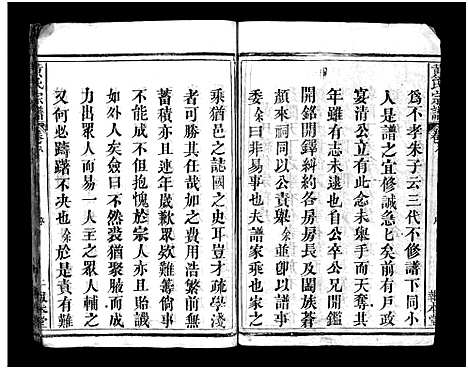 黄氏宗譜
為不孝朱子云三代不修譜下同小
人是譜之宜修誠急匕矣前有戶政
宴清公立有此念未舉手而奠其
年雖有志未逮也自公卒公兄開鑑
開銘開鐸糾約各房房長及闔族蒼
顏來祠同以公責舉余並卽以譜事
委余余曰非易事也夫譜家之乘也家之
乘猶邑之誌國之史耳豈才疏學淺
者可勝其任哉如之費用浩繁前無
蓄積亦且連年歲歉眾欵難籌倘事
不能成不但抱愧於宗人亦且貽譏
如外人矣僉曰不然裘猶聚腋而成
力出眾人而易一人主之眾人輔之
又何必躊躇不决也余於是責有難
黄氏宗譜